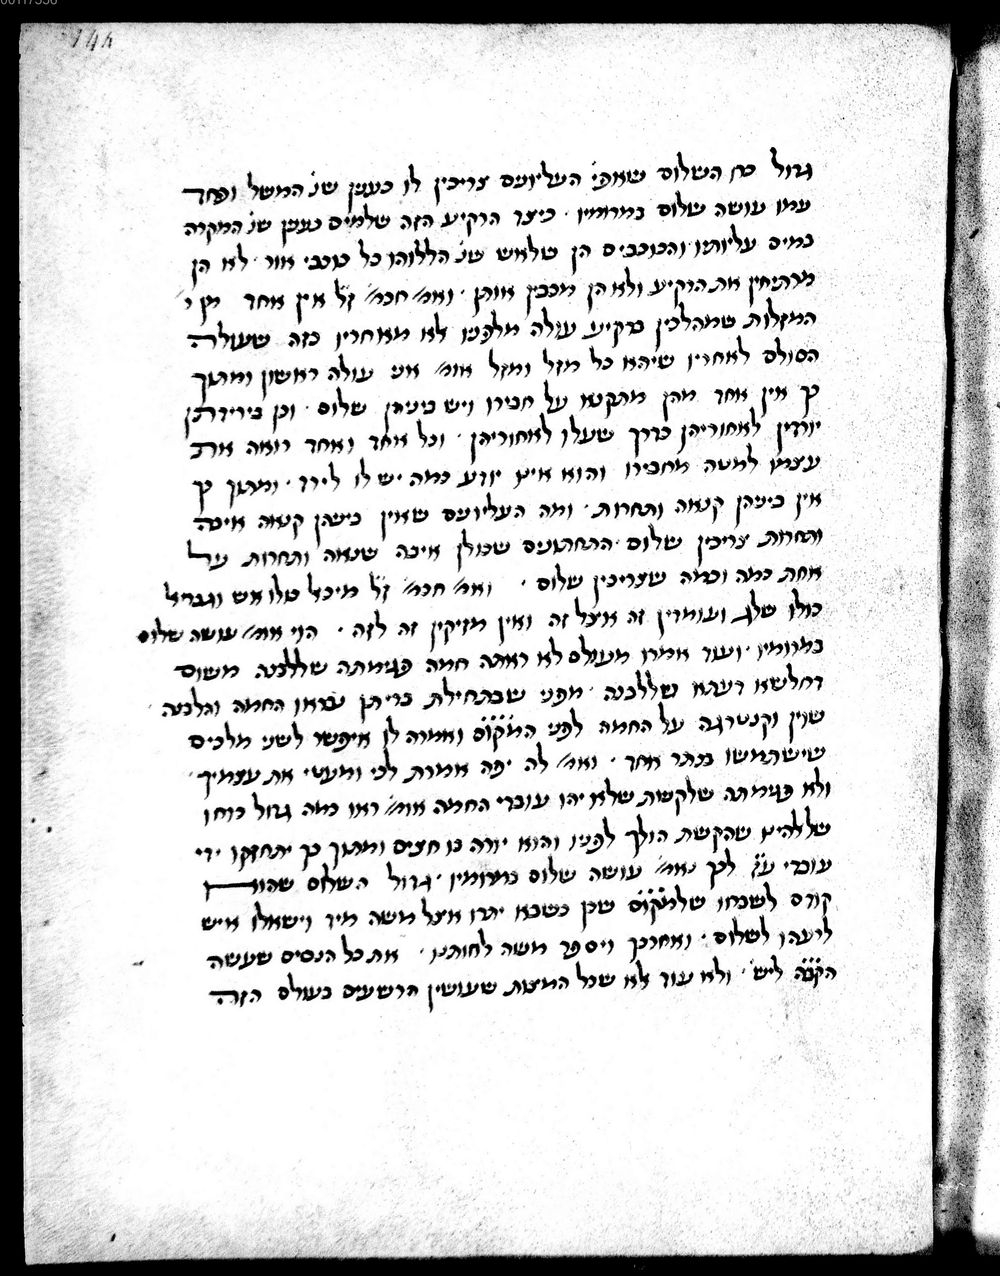 144
גדול כח השלום שאפי׳ העליונים צריכין לו כענין שנ׳ המשל ופחד
עמו עושה שלום במרומיו · כיצד הרקיע הזה שלמים כענין שנ׳ המקרה
במים עליותיו והכוכבים הן שלאש שנ׳ הללוהו כל כוכבי אור · לא הן
מרתיחין את הרקיע ולא הן מכבין אותן · ואמ׳ חכמ׳ ז״ל אין אחד מן
המזלות שמהלכין ברקיע עולה מלפניו לא מאחריו כזה שעולה
הסולם לאחריו שיהא כל מזל ומזל אומ׳ אני עולה ראשון ומתוך
כך אין אחד מהן מתקנא על חבירו ויש ביניהן שלום · וכן בירידתן
יורדין לאחוריהן כדרך שעלו לאחוריהן · וכל אחד ואחד רואה את
עצמו למטה מחבירו והוא אינו יודע כמה יש לו לירד · ומתוך כך
אין ביניהן קנאה ותחרות · ומה העליונים שאין ביניהן קנאה איבה
ותחרות צריכין שלום · התחתונים שכולן איבה שנאה ותחרות על
אחת כמה וכמה שצריכין שלום · ואמ׳ חכמ׳ ז״ל מיכאל כולו אש וגבריאל
כולו שלג ועומדין זה אצל זה ואין מזיקין זה לזה · הוי אומ׳ עושה שלום
במרומיו · ועוד אמרו מעולם לא ראתה חמה פגימתה שללבנה משום
דחלשא דעתא שללבנה · מפני שבתחילת ברייתן נבראו החמה והלבנה
שוין וקנטרגה על החמה לפני המקום ואמרה לו איפשר לשני מלכים
שישתמשו בכתר אחד · ואמ׳ לה יפה אמרת לכי ומעטי את עצמיך ·
ולא פגימתה שלקשת שלא יהו עובדי החמה אומ׳ ראו כמה גדול כוחו
שלאלהינו שהקשת הולך לפניו והוא יורה בו חצים ומתוך כך יתחזקו ידי
עובדי ע״ז לכך נאמ׳ עושה שלום במרומיו · גדול השלום שהוא
קודם לשבחו שלמקום שכן כשבא יתרו אצל משה מיד וישאלו איש
לרעהו לשלום · ואחרכך ויספר משה לחותנו · את כל הנסים שעשה
הקב״ה ליש׳ · ולא עוד לא שכל המצות שעושין הרשעים בעולם הזה